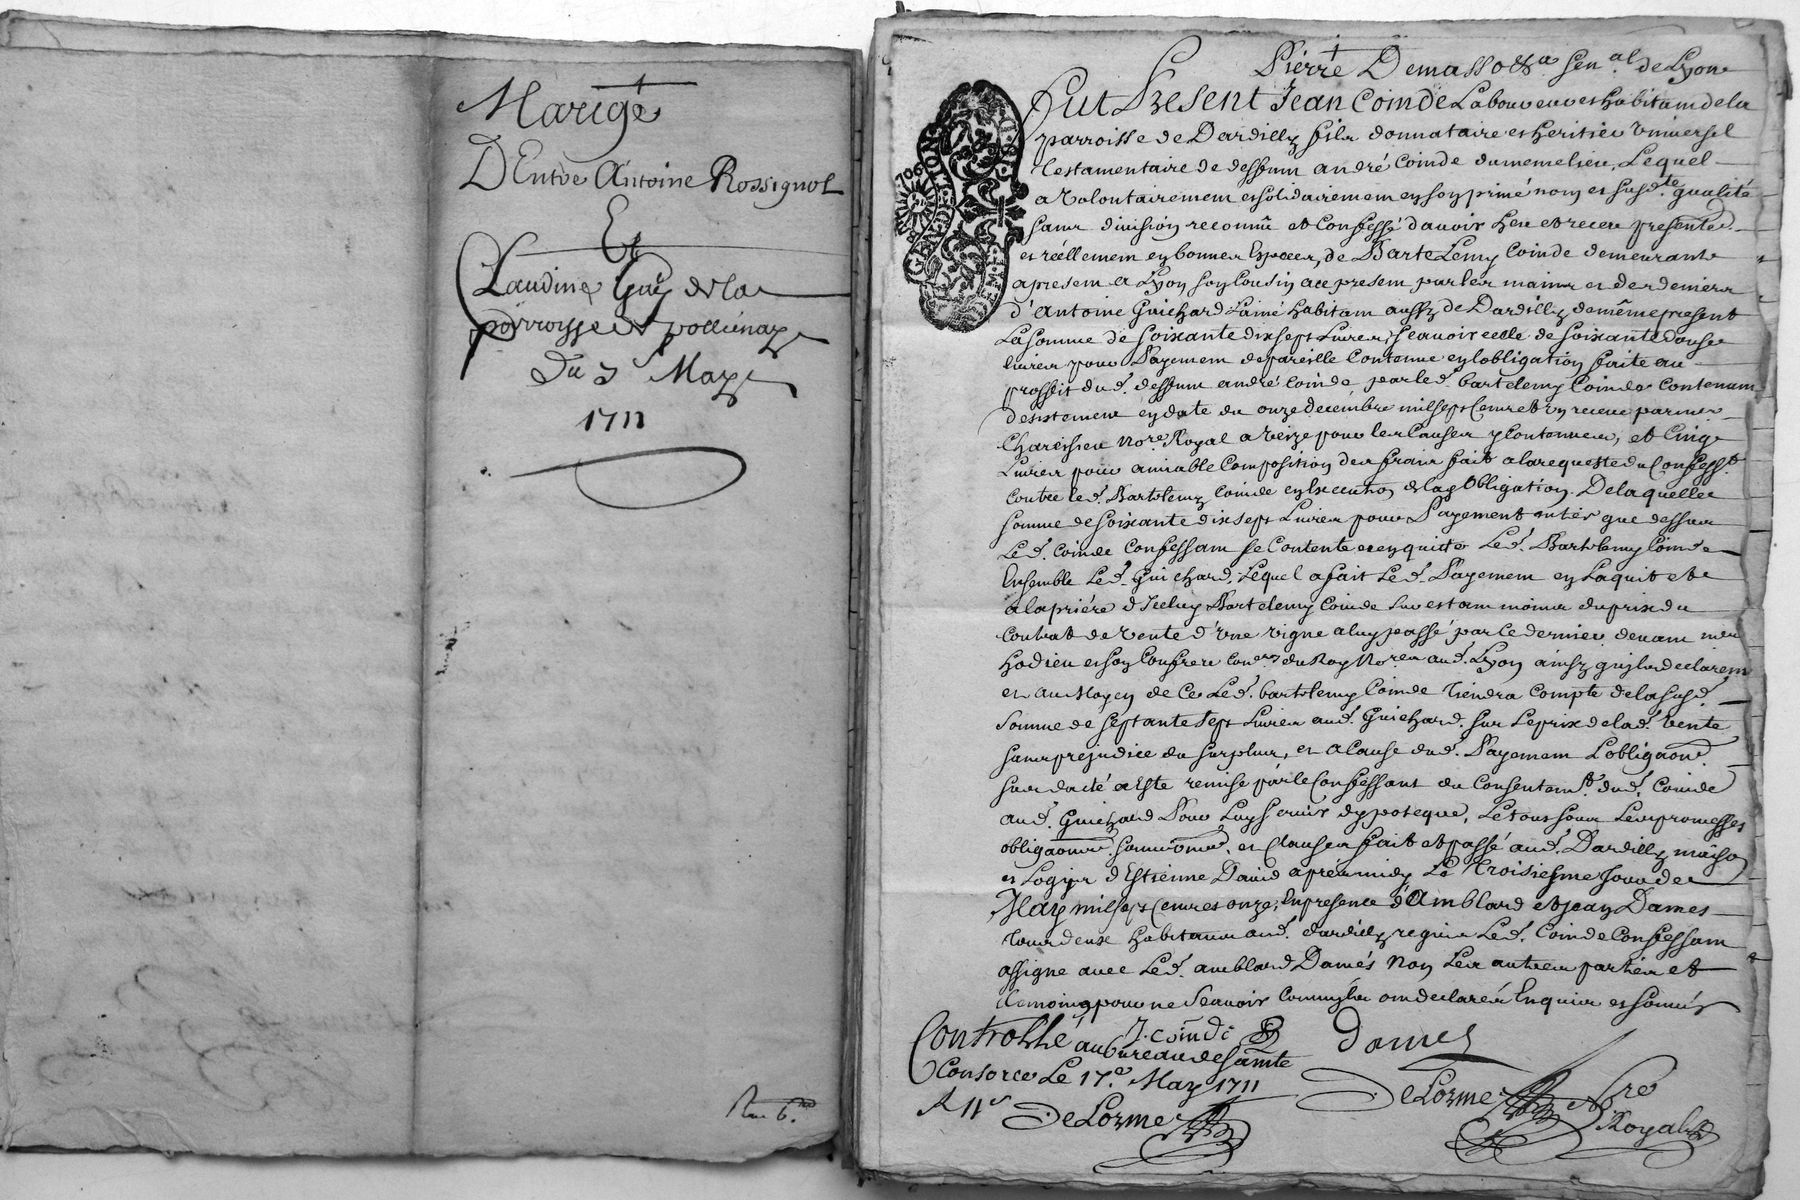 Mariage
D'Entre Antoine Rossignol
Et
Claudine Guy de la
parroisse de pollienay
Du 3e May
1711
Pierre Demasso &a sen.al de Lyon
GEN DE LYON
1706
Fut Present Jean Coinde Laboureur et habitam de la
parroisse de Dardilly fils donnataire et heritier Universel
testamentaire de deffunt andré Coinde dumeme lieu, Lequel
a Volontairement et solidairement en son privé nom et susd.te qualité
sans division reconnu et Confessé d'avoir heu et receu presentem.
et réellement en bonnes Especes, de BarteLemy Coinde demeurant
apresent a Lyon son Cousin ace present par les mains et des deniers
d'Antoine Guichard L'ainé habitam aussy de Dardilly de même present
La somme de soixante dix sept Livres, scavoir celle de soixante douse
livres pour Payement de pareille Contenue en lobligation faite au
proffit dud. deffunt andré Coinde par led. bartelemy Coinde Contenant
desistement en date du onze decembre mil sept cent et un receue par me
Charessieu no.re Royal a Veize pour les Causes y Contenues, et Cinq
Livres pour amiable Composition des frais fait ala requeste du Confess.t
Contre led. Bartelemy Coinde en execution de lad. Obligation. De laquelle
somme de soixante dix sept Livres pour Payement entier que dessus
Led. Coinde Confessant se Contente et en quitte Led. Bartelemy Coinde
Ensemble Led. Guichard, Lequel a fait Led. Payement en Laquit et
a la priére d'Iceluy Bartelemy Coinde sur estant moins du prix du
Contrat de Vente d'une vigne a luy passé par le dernier devant me
hodieu et son Confrere Con.ers du Roy No.res aud. Lyon ainsy quils declarent
et au Moyen de Ce Led. bartelemy Coinde tiendra Compte de la susd.
Somme de septante sept Livres aud. Guichard sur Le prix de lad. Vente
sans prejudice du surplus, et a Cause dud. Payement L'obligaon
sus datée a Esté remise par le Confessant du Consentem.t dud. Coinde
aud. Guichard Pour Luy servir dypoteque, Le tous sous Leurs promesses
obligaons, soumions, et Clauses fait et passé aud. Dardilly maison
et Logis d'Estienne David apres midy Le Troisiesme Jour de
May mil sept Cent et onze, En presence d'Amblard et Jean Dames
tous deux habitans aud. dardilly requis Led. Coinde Confessant
a signé avec Led. amblard Damés Non Les autres parties et
temoins, pour ne Scavoir Comme ils ont declaré Enquis et sommés
J. Coindi
Dames
Controllé au bureau de Sainte
Consorce Le 17.e May 1711
R 11s
DeLorme
DeLorme Nre
Royal